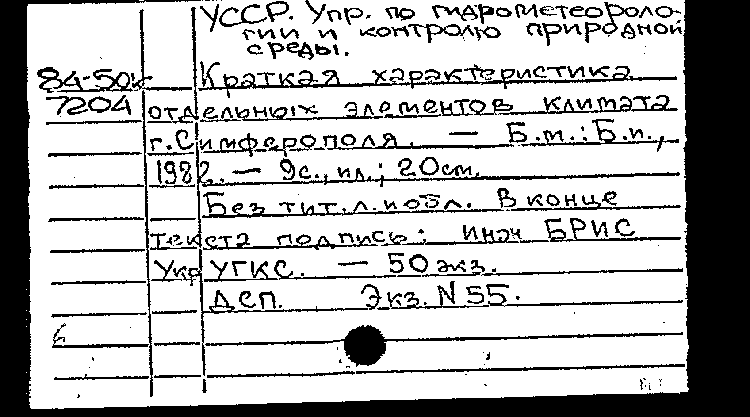 УССР. Упр. по гидрометеороло-
гии и контролю природной
среды.
84-50к Краткая характеристика
7204 отдельных элементов климата
г. Симферополя. — Б.м.: Б.и.,
1982. — 9с., ил.; 20см.
Без тит.л. и обл. В конце
текста подпись: инж БРИС
Укр УГКС. — 50 экз.
ДСП. Экз. N 55.